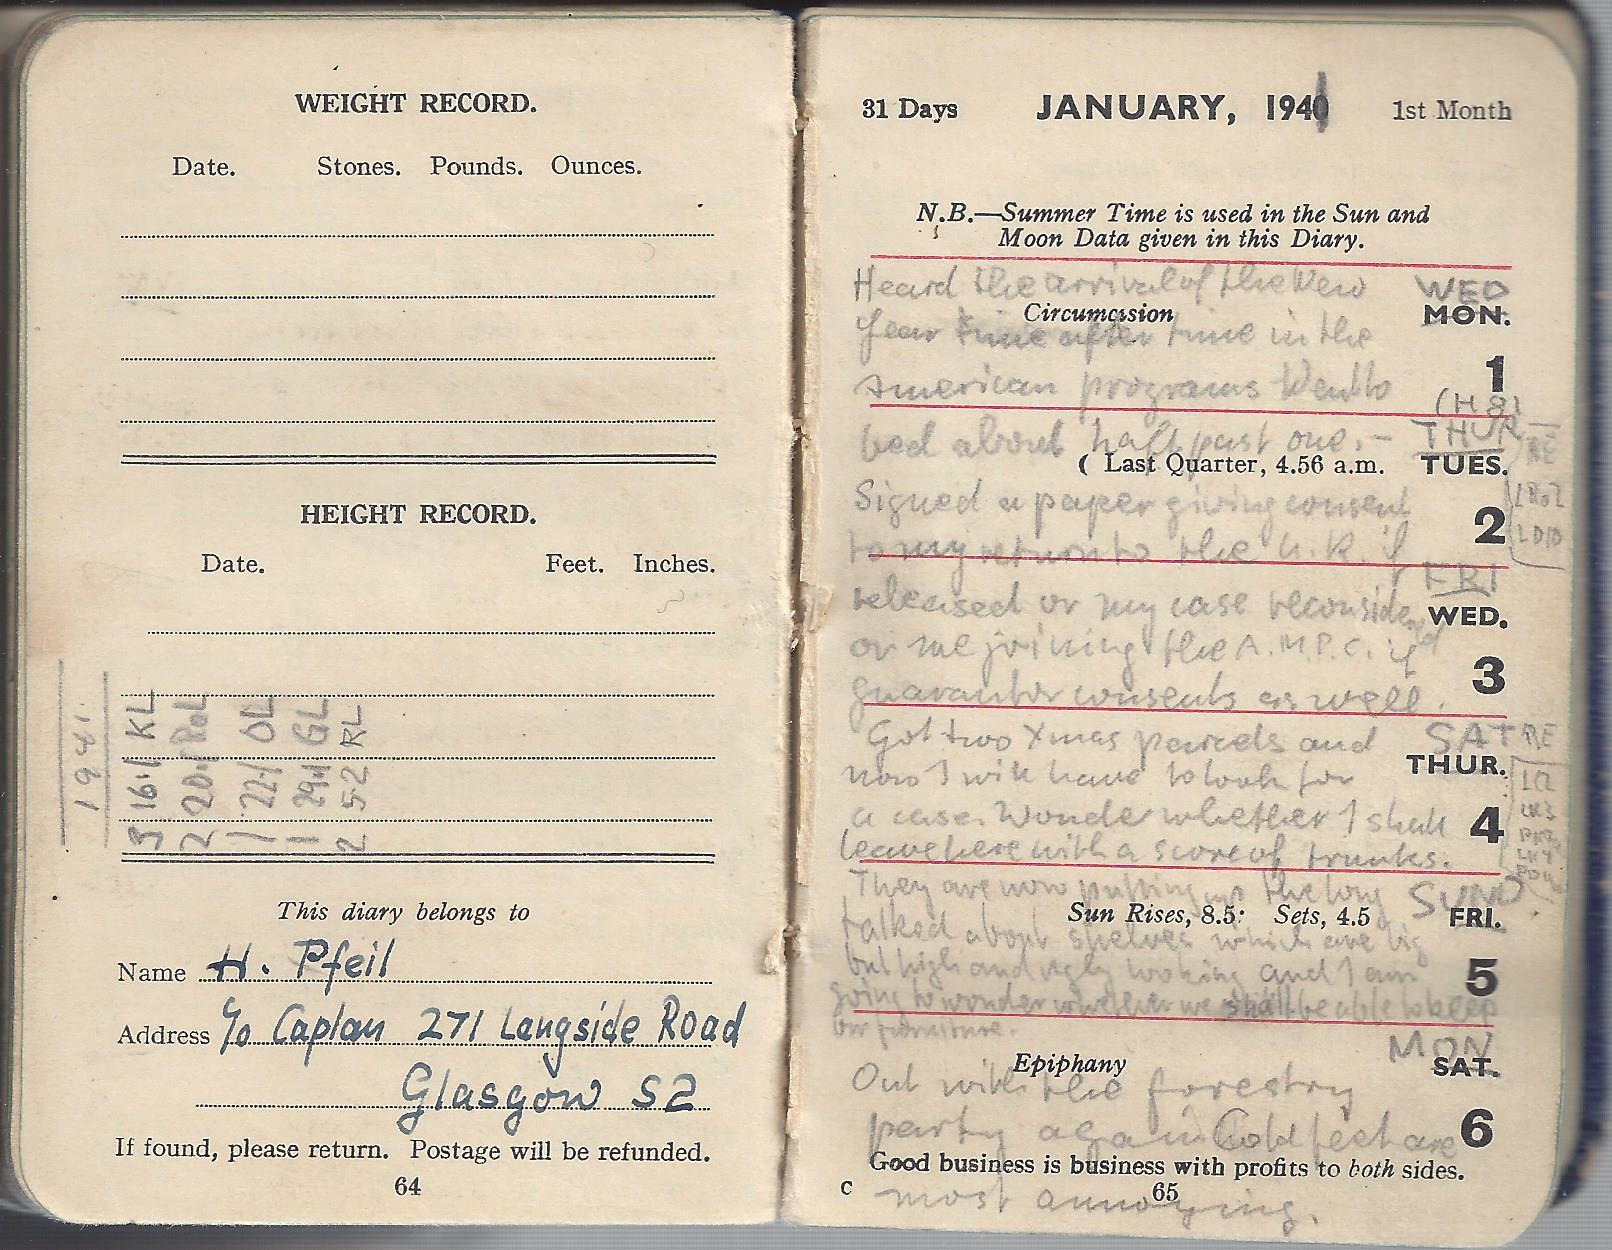 WEIGHT RECORD.
Date. Stones. Pounds. Ounces.
HEIGHT RECORD.
Date. Feet. Inches.
1941.
3 16.1 KL
2 20.1 RoL
1 22.1 OL
1 29.1 GL
2 5.2 RL
This diary belongs to
Name H. Pfeil
Address c/o Caplan 271 Langside Road
Glasgow S2
If found, please return. Postage will be refunded.
64
31 Days JANUARY, 1941 1st Month
N.B.—Summer Time is used in the Sun and
Moon Data given in this Diary.
Heard the arrival of the New WED
Circumcision MON.
Year time after time in the
1
American programs Went to
(H8)
bed about half past one.- THUR RE
( Last Quarter, 4.56 a.m. TUES.
Signed a paper giving consent
2
to my return to the U.K. if
FRI
released or my case reconsidered WED.
or me joining the A.M.P.C. if
3
guarantor consents as well.
Got two Xmas parcels and SAT RE
THUR.
now I will have to look for
a case. Wonder whether I shall 4
leave here with a score of trunks.
They are now putting up the long SUND
Sun Rises, 8.5: Sets, 4.5 FRI.
talked about shelves which are big
but high and ugly looking and I am 5
going to wonder whether we shall be able to keep
our furniture.
MON
Epiphany SAT.
Out with the forestry
party again Cold feet are 6
Good business is business with profits to both sides.
C 65
most annoying.